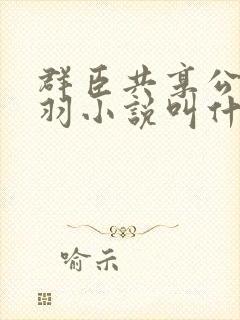 群臣共享公
羽小说叫什
喻示